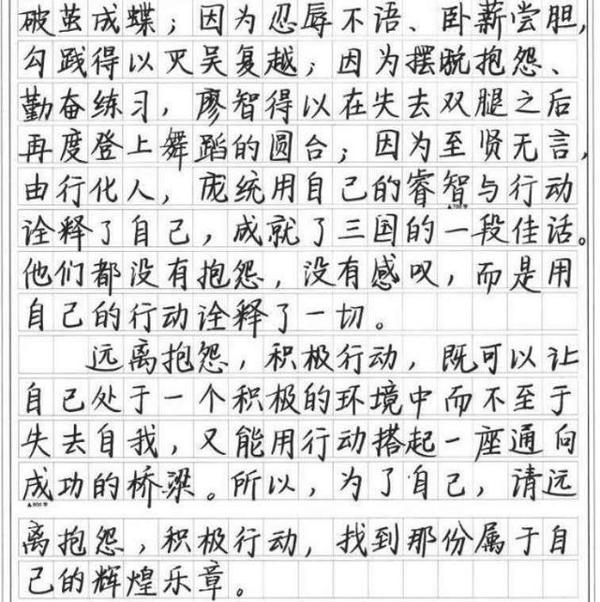 破茧成蝶；因为忍辱不语、卧薪尝胆，
勾践得以灭吴复越；因为摆脱抱怨、
勤奋练习，廖智得以在失去双腿之后
再度登上舞蹈的圆台；因为至贤无言，
由行化人，庞统用自己的睿智与行动
诠释了自己，成就了三国的一段佳话。
他们都没有抱怨，没有感叹，而是用
自己的行动诠释了一切。
远离抱怨，积极行动，既可以让
自己处于一个积极的环境中而不至于
失去自我，又能用行动搭起一座通向
成功的桥梁。所以，为了自己，请远
▲800字
离抱怨，积极行动，找到那份属于自
己的辉煌乐章。